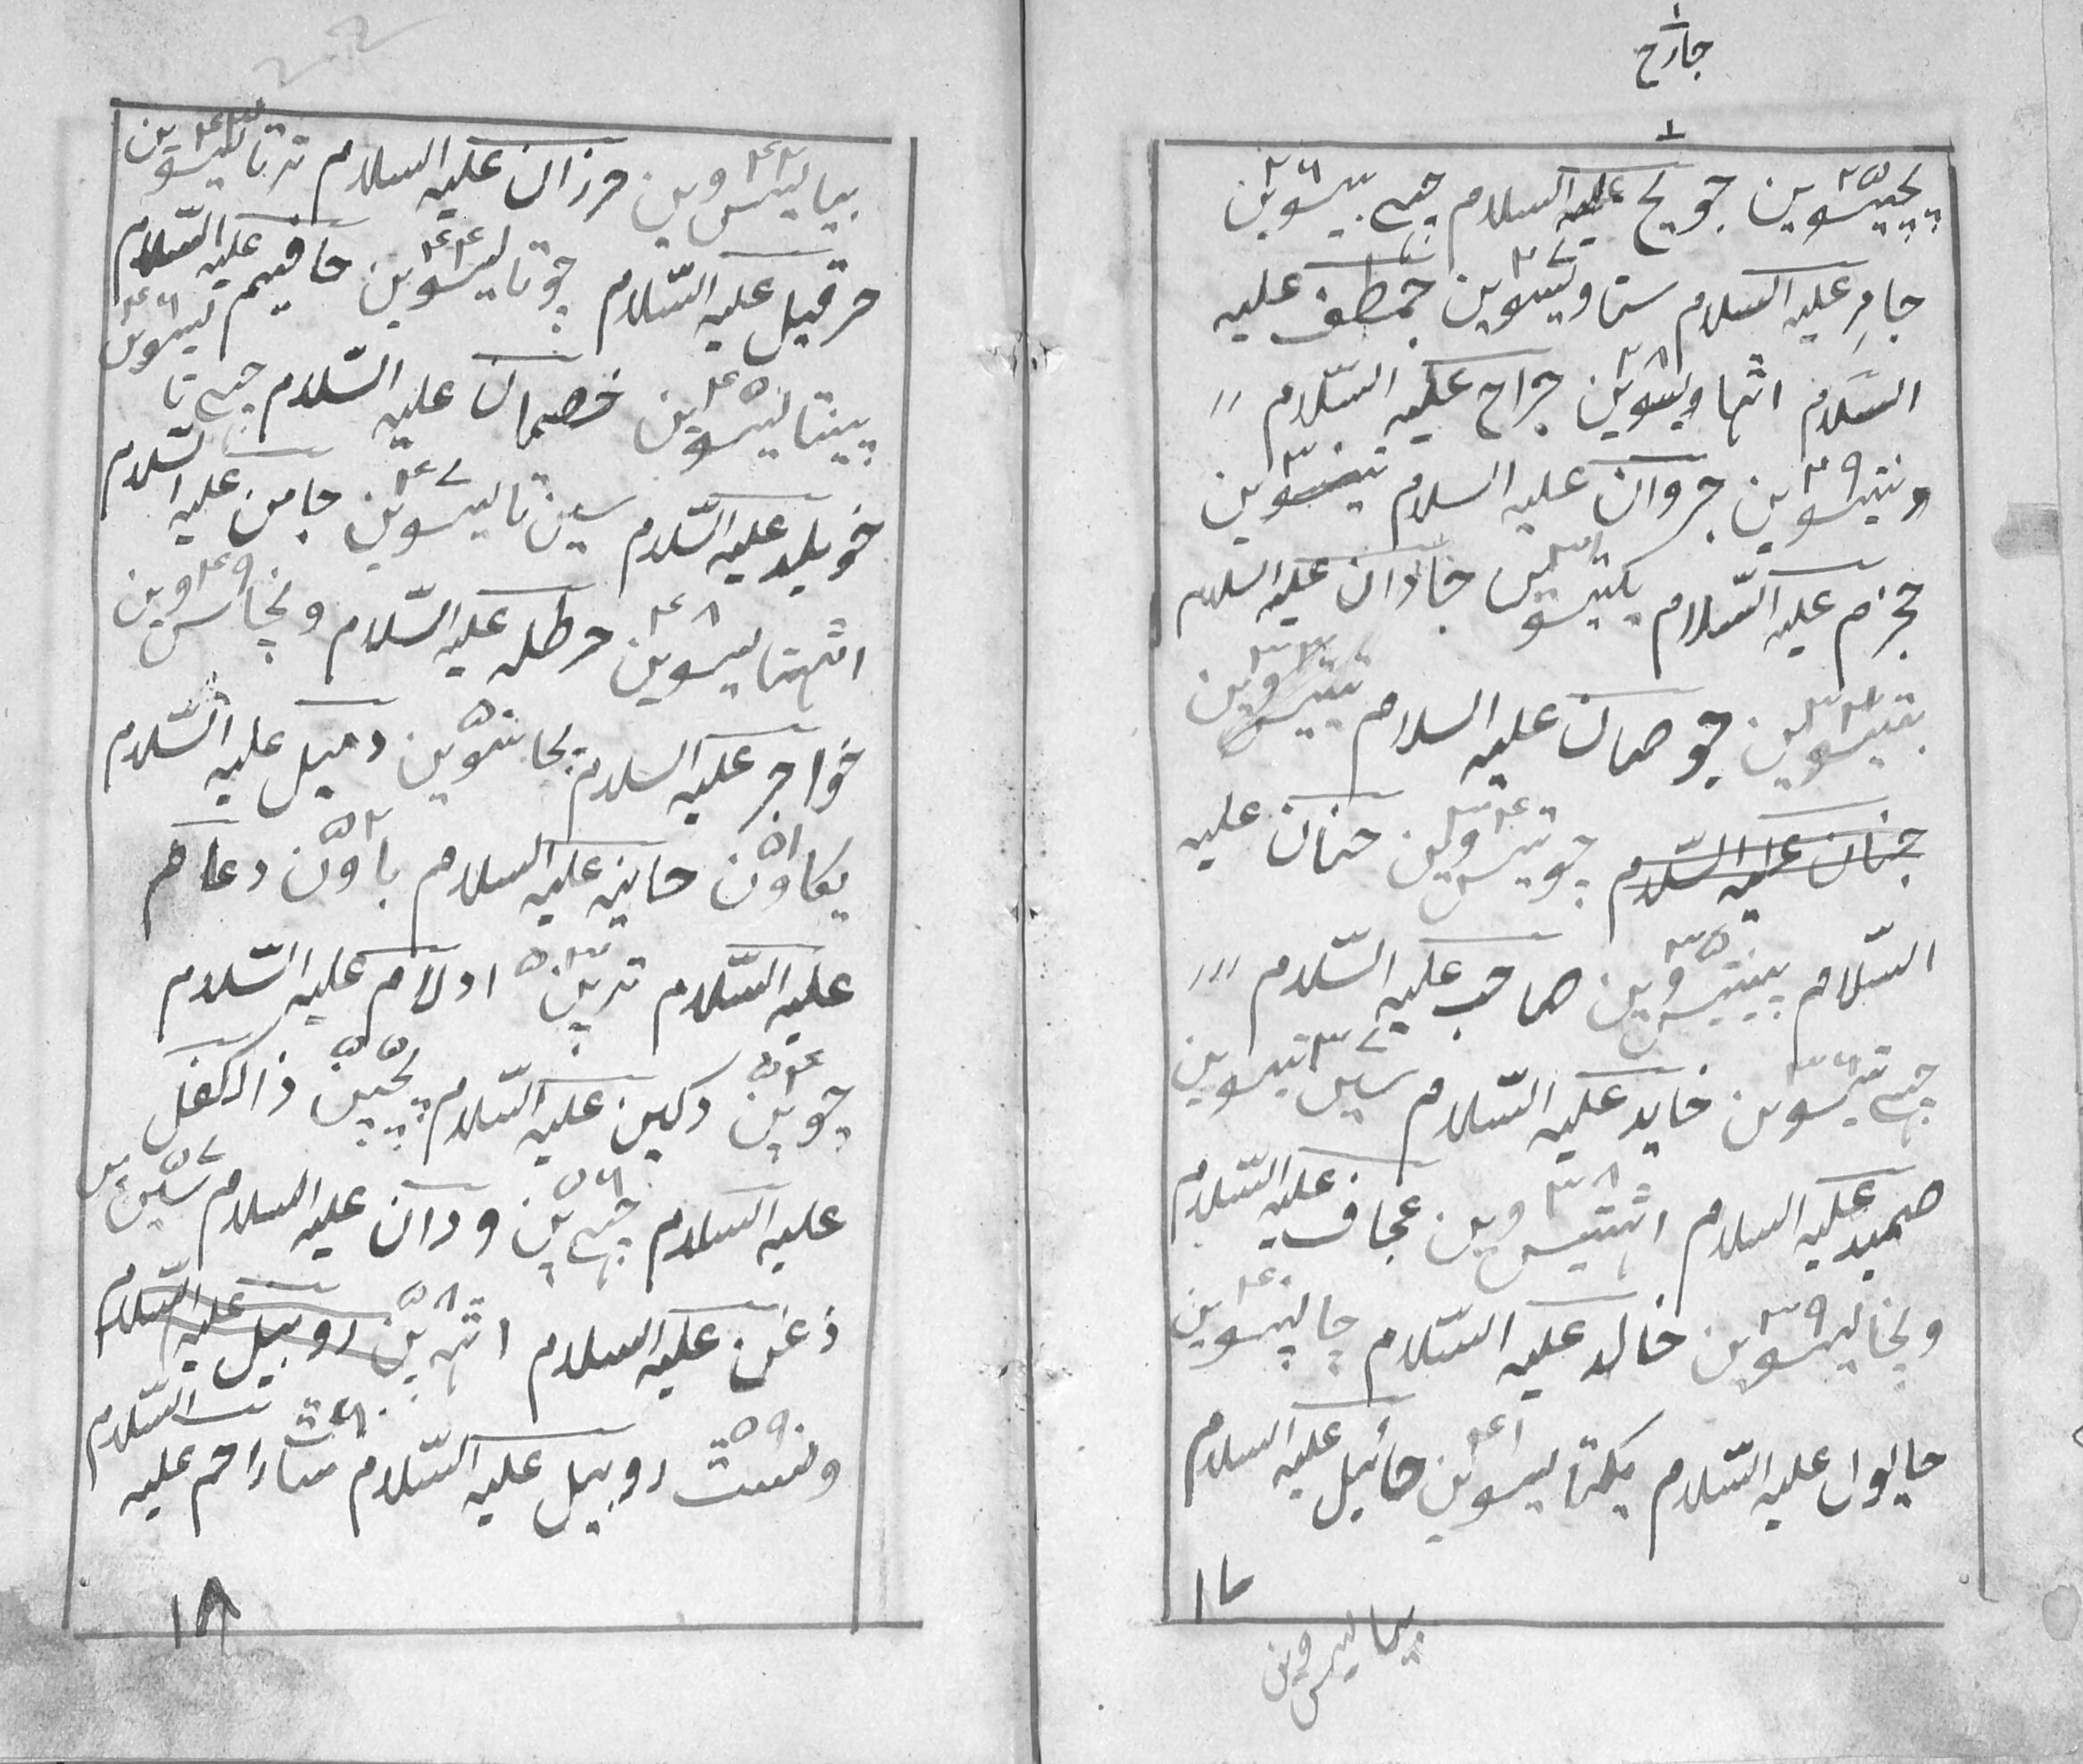 جارح
پچیسوین ۲۵ جویح علیہ السلام چھ بیسوین ۲۶
جامِر علیہ السلام ستاویسوین ۲۷ جمطف علیہ
السلام اٹھاویسوین ۲۸ جراح علیہ السّلام
ونتیسوین ۲۹ جروان علیہ السلام تیسوین ۳۰
جزم علیہ السّلام یکتیسوین ۳۱ جاذان علیہ السلام
بتیسوین ۳۲ جوصان علیہ السلام تیتیسوین ۳۳
جنان علیہ السّلام چوتیسوین ۳۴ حنان علیہ
السّلام پینتیسوین ۳۵ صاحب علیہ السّلام
چھ تیسوین ۳۶ خاید علیہ السّلام سین تیسوین ۳۷
صمید علیہ السلام اٹھتیسوین ۳۸ عجاف علیہ السّلام
ونچالیسوین ۳۹ خالد علیہ السّلام چالیسوین ۴۰
حالوا علیہ السّلام یکتالیسوین ۴۱ حائیل علیہ السلام
۱۷
بیالیسوین
بیالیسوین ۴۲ حرزان علیہ السلام ترتالیسوین ۴۳
حرقیل علیہ السّلام چوتالیسوین ۴۴ حافیم علیہ السّلام
پینتالیسوین ۴۵ خصمان علیہ السّلام چھ تالیسوین ۴۶
خویلد علیہ السّلام سین تالیسوین ۴۷ جامن علیہ السّلام
اٹھتالیسوین ۴۸ حرطلہ علیہ السّلام ونچاسوین ۴۹
خواجر علیہ السلام پچاسوین ۵۰ دمیل علیہ السّلام
یکاون ۵۱ حاینہ علیہ السلام باون ۵۲ دعاهم
علیہ السّلام ترپن ۵۳ ادلام علیہ السّلام
چوپن ۵۴ دکین علیہ السّلام پچپن ۵۵ ذالکفل
علیہ السلام چھ پن ۵۶ ودان علیہ السلام ستپن ۵۷
ذغن علیہ السلام اٹھ پن ۵۸ روبیل علیہ السّلام
ونسٹ ۵۹ روبیل علیہ السّلام ساٹ ۶۰ راحم علیہ السّلام
۱۸